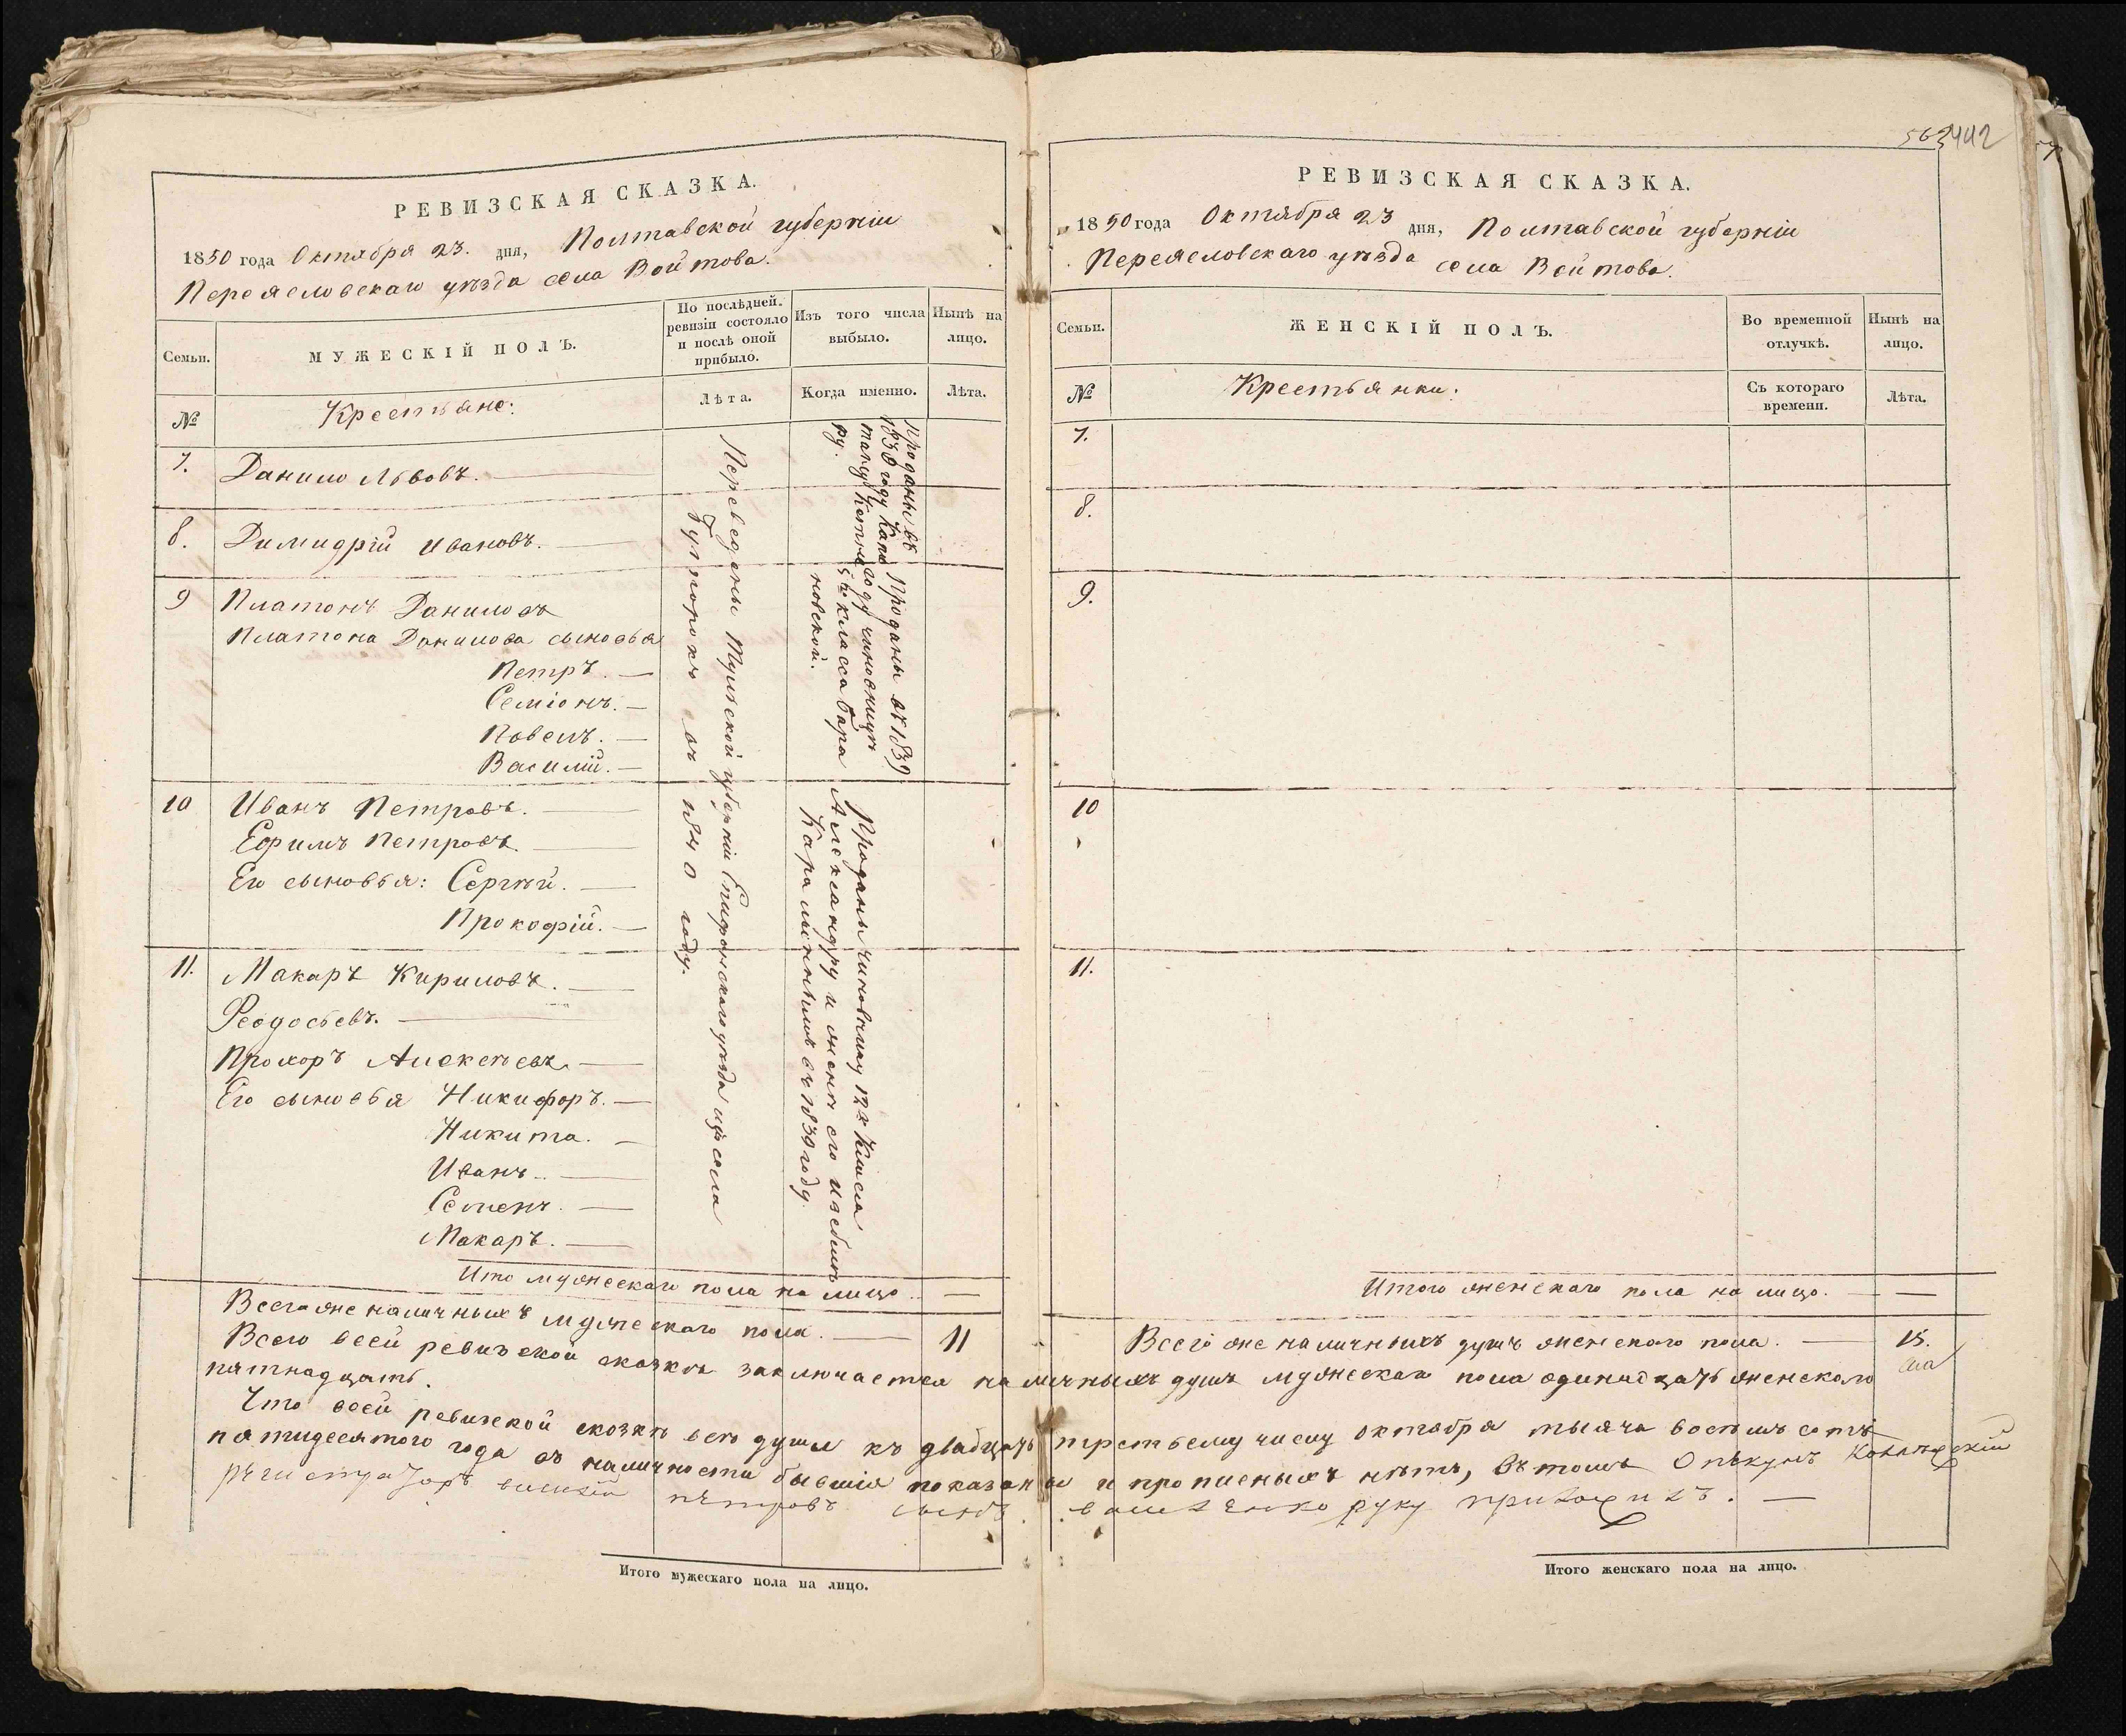 РЕВИЗСКАЯ СКАЗКА.
1850 года Октября 23. дня, Полтавской губерніи
Переясловскаго уѣзда села Войтова.
Семьи.
МУЖЕСКІЙ ПОЛЪ.
По послѣдней
ревизіи состояло
и послѣ оной
прибыло.
Изъ того числа
выбыло.
Нынѣ на
лицо.
№
Крестьяне:
Лѣта.
Когда именно.
Лѣта.
7. Данило Львовъ.
8. Димидрій Ивановъ.
9 Платонъ Даниловъ
Платона Данилова сыновья
Петръ.
Семіонъ.
Павелъ.
Василій.
10 Иванъ Петровъ.
Ефимъ Петровъ.
Его сыновья: Сергѣй.
Прокофій.
11. Макаръ Кириловъ.
Феодосьевъ.
Прохоръ Алексѣевъ.
Его сыновья Никифоръ.
Никита.
Иванъ.
Семенъ.
Макаръ.
Переведены Тульской губерніи Епифанскаго уѣзда изъ села
въ 1840 году.
Проданы въ
1838 году Капи
тану
ру.
Проданы въ 1839
году чиновницѣ
5го класса Бара
новской.
Проданы чиновнику 12го Класса
Александру и женѣ его Изабелѣ
въ 1839 году
Ито мужескаго пола на лицо. —
Всего же наличныхъ мужескаго пола. — 11
РЕВИЗСКАЯ СКАЗКА.
1850 года Октября 23 дня, Полтавской губерніи
Переясловскаго уѣзда села Войтова.
Семьи.
ЖЕНСКІЙ ПОЛЪ.
Во временной
отлучкѣ.
Нынѣ на
лицо.
№
Крестьянки:
Съ котораго
времени.
Лѣта.
7.
8.
9.
10
11.
Итого женскаго пола на лицо. — —
Всего же наличныхъ душъ женскаго пола. — 15.
Всего всей ревизской сказкѣ заключается наличныхъ душъ мужескаго пола одинадцать женскаго
пятнадцать.
Что всей ревизской сказкѣ всѣ души къ двадцать третьему числу октября тысяча восемь сотъ
пятидесятого года въ наличности бывшія показаны и прописныхъ нѣтъ, въ томъ Опѣкунъ
регистраторъ василій пѣтровъ сынъ руку приложилъ.
Итого мужескаго пола на лицо.
Итого женскаго пола на лицо.